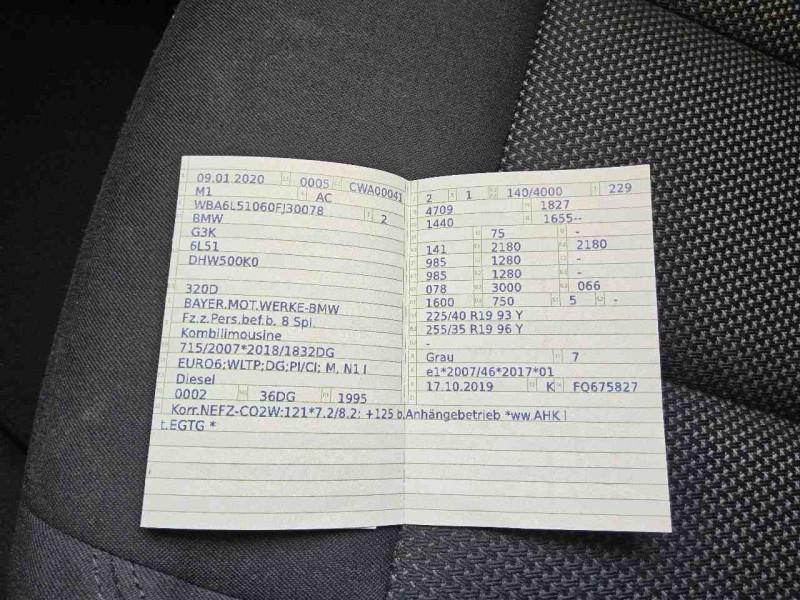 09.01.2020 0005 CWA00041
M1 AC
WBA6L51060FJ30078 2
BMW
G3K
6L51
DHW500K0
320D
BAYER.MOT.WERKE-BMW
Fz.z.Pers.bef.b. 8 Spl.
Kombilimousine
715/2007*2018/1832DG
EURO6;WLTP;DG;PI/CI; M, N1 I
Diesel
0002 36DG 1995
Korr.NEFZ-CO2W:121*7.2/8.2: +125 b.Anhängebetrieb *ww.AHK l
t.EGTG *
2 1 140/4000 229
4709 1827
1440 1655--
75 -
141 2180 2180
985 1280 -
985 1280 -
078 3000 066
1600 750 5 -
225/40 R19 93 Y
255/35 R19 96 Y
-
Grau 7
e1*2007/46*2017*01
17.10.2019 K FQ675827